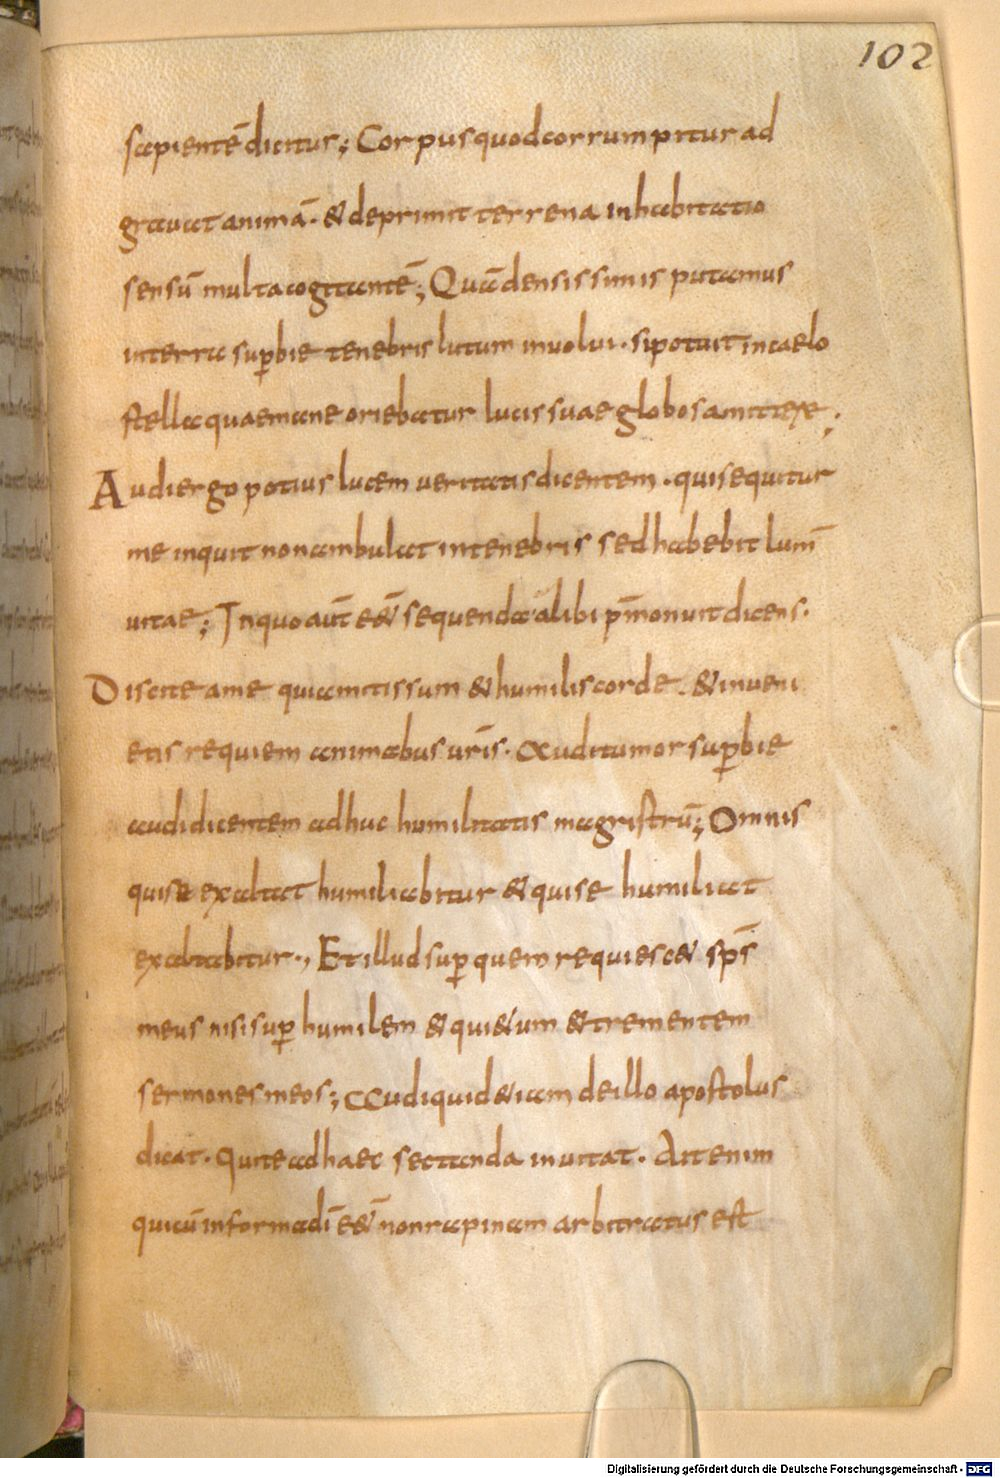 102
sapientē dicitur; Corpus quod corrumpitur ad
gravat animā· & deprimit terrena inhabitatio
sensū multa cogitantē; Quā densissimis putamus
in terra sup̄bie tenebris lutum involvi· si potuit in caelo
stella quae mane oriebatur lucis suae globos amittere;
Audi ergo potius lucem veritatis dicentem· qui sequitur
me inquit non ambulat in tenebris sed habebit lum̄
vitae; In quo aūt e&̄ sequenda alibi p̄monuit dicens·
Discite a me quia mitis sum & humilis corde· & inveni
etis requiem animabus vr̄is· Audi tumor sup̄bie
audi dicentem adhuc humilitatis magistrū; Omnis
qui se exaltat humiliabitur & qui se humiliat
exaltabitur·, Et illud sup̄ quem requiesc& sp̄s
meus nisi sup̄ humilem & qui&um & trementem
sermones meos; Audi quid &iam de illo apostolus
dicat· Qui te ad haec sectanda invitat· Ait enim
qui cū in forma dī e&̄ non rapinam arbitratus est
Digitalisierung gefördert durch die Deutsche Forschungsgemeinschaft - DFG